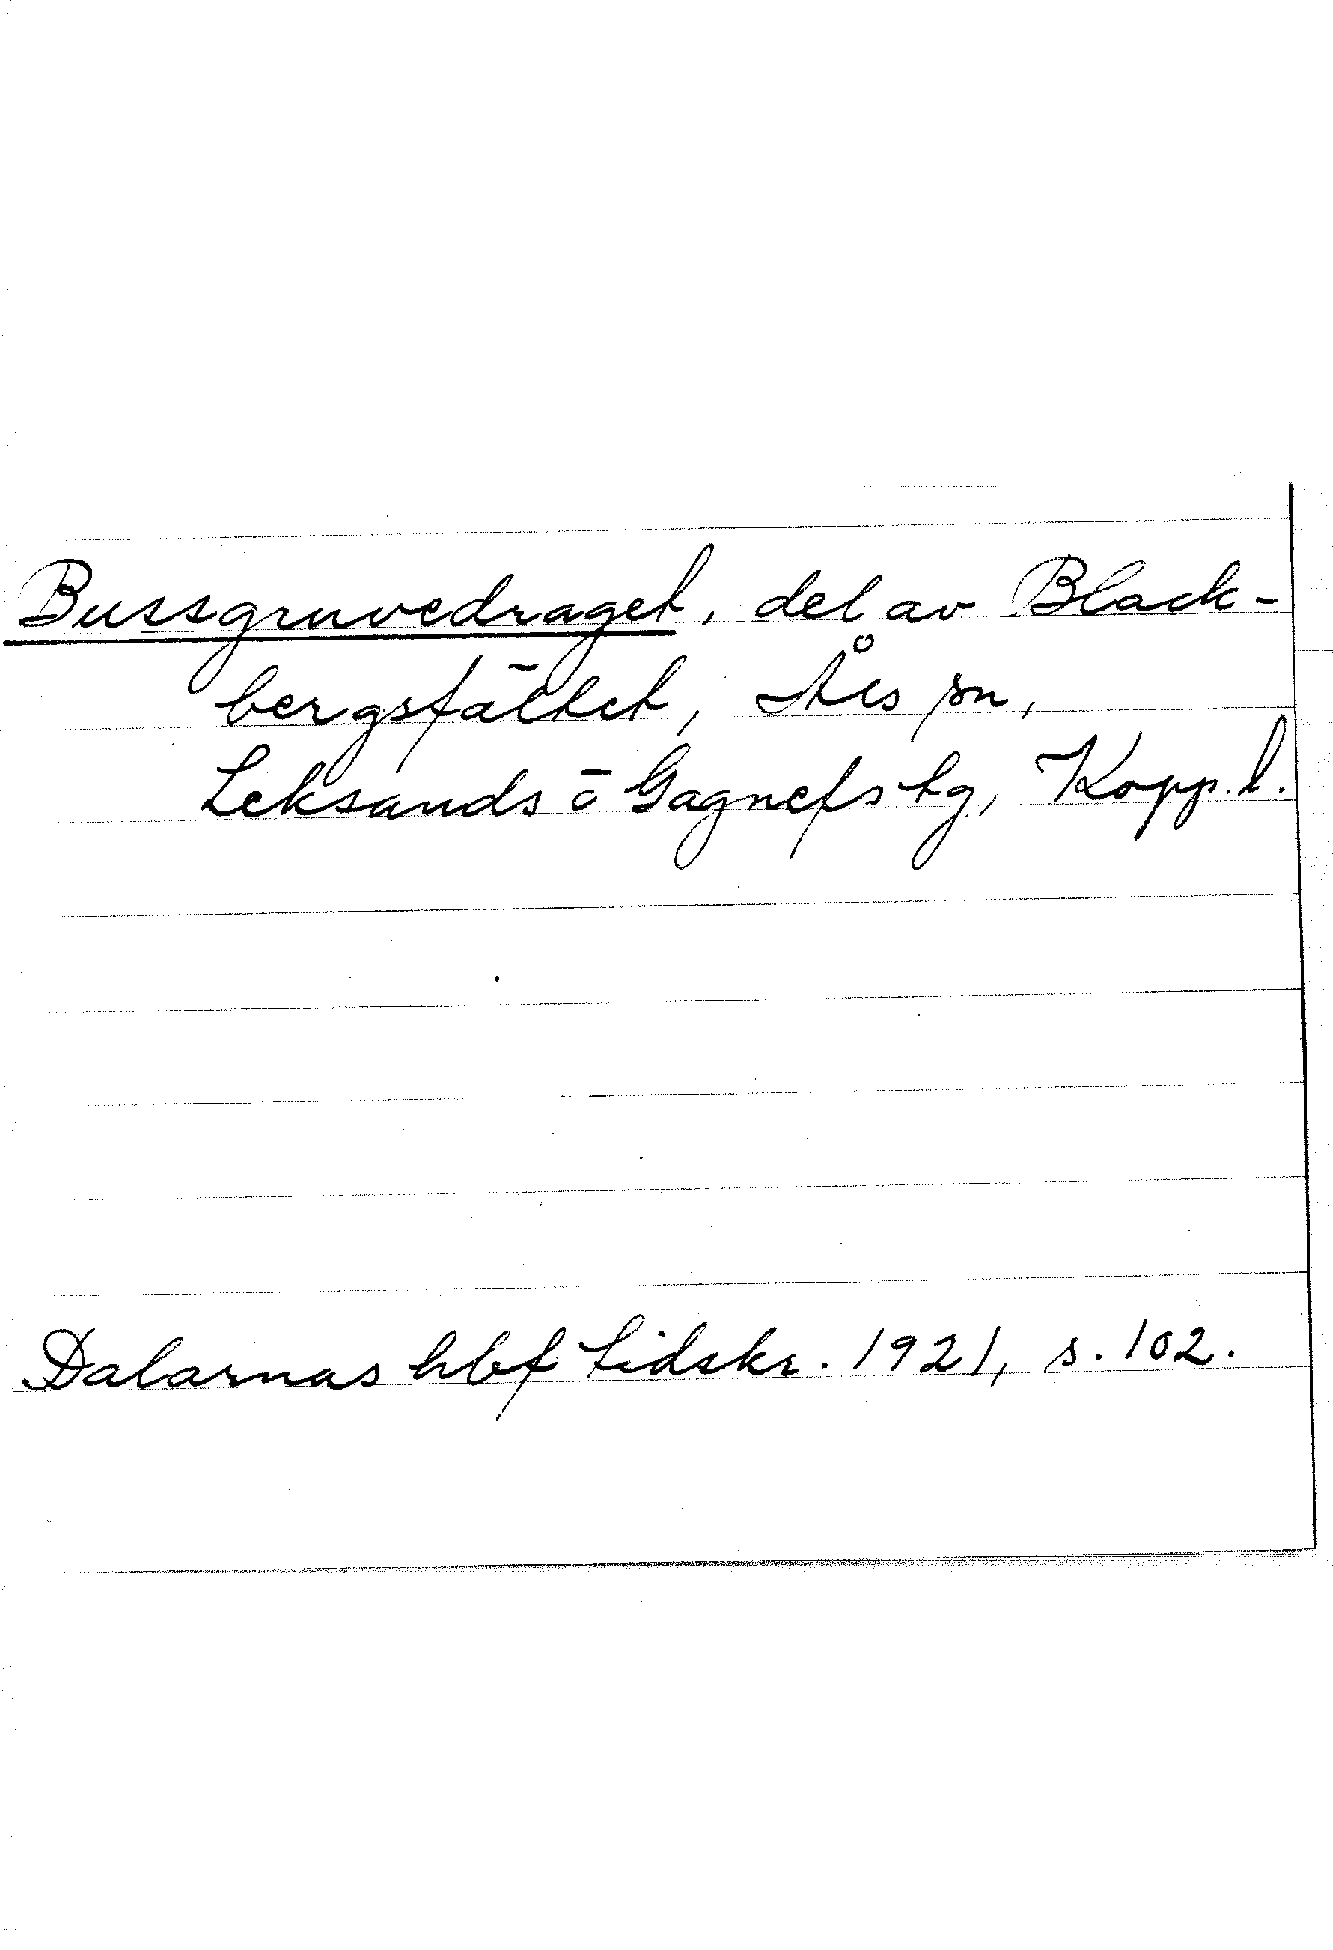 Bussgruvedraget, del av Black-
bergsfältet, Åls sn,
Leksands o Gagnefs tg, Kopp. l.
Dalarnas hbf tidskr. 1921, s. 102.